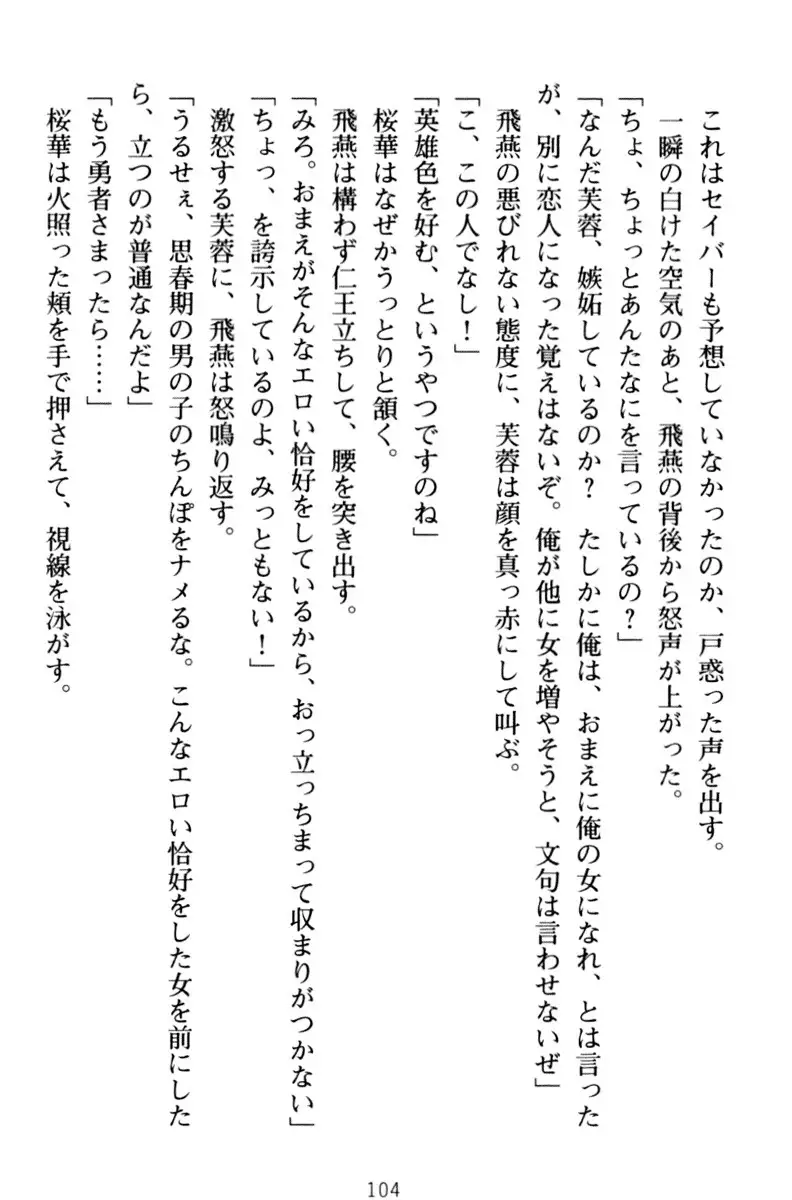 これはセイバーも予想していなかったのか、戸惑った声を出す。
一瞬の白けた空気のあと、飛燕の背後から怒声が上がった。
「ちょ、ちょっとあんたなにを言っているの？」
「なんだ芙蓉、嫉妬しているのか？　たしかに俺は、おまえに俺の女になれ、とは言った
が、別に恋人になった覚えはないぞ。俺が他に女を増やそうと、文句は言わせないぜ」
飛燕の悪びれない態度に、芙蓉は顔を真っ赤にして叫ぶ。
「こ、この人でなし！」
「英雄色を好む、というやつですのね」
桜華はなぜかうっとりと頷く。
飛燕は構わず仁王立ちして、腰を突き出す。
「みろ。おまえがそんなエロい恰好をしているから、おっ立っちまって収まりがつかない」
「ちょっ、を誇示しているのよ、みっともない！」
激怒する芙蓉に、飛燕は怒鳴り返す。
「うるせぇ、思春期の男の子のちんぽをナメるな。こんなエロい恰好をした女を前にした
ら、立つのが普通なんだよ」
「もう勇者さまったら……」
桜華は火照った頬を手で押さえて、視線を泳がす。
104